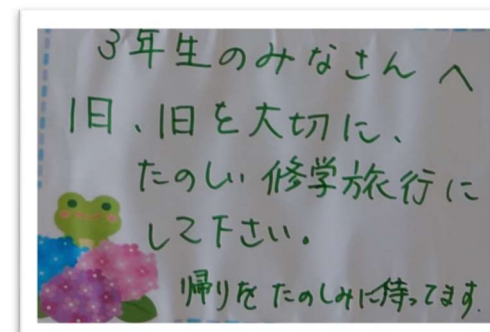 3年生のみなさんへ
1日、1日を大切に、
たのしい修学旅行に
して下さい。
帰りをたのしみに待ってます.